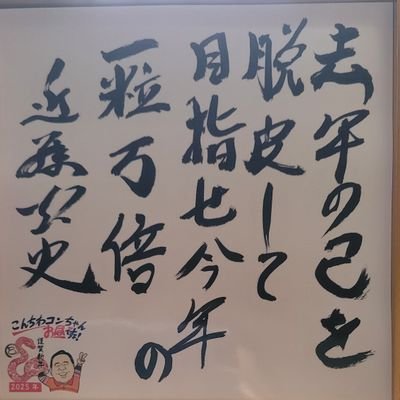 去年の己を
脱皮して
目指せ今年の
一粒万倍
近藤光史
こんちわコンちゃん
お昼ですょ!
謹賀新年
2025年